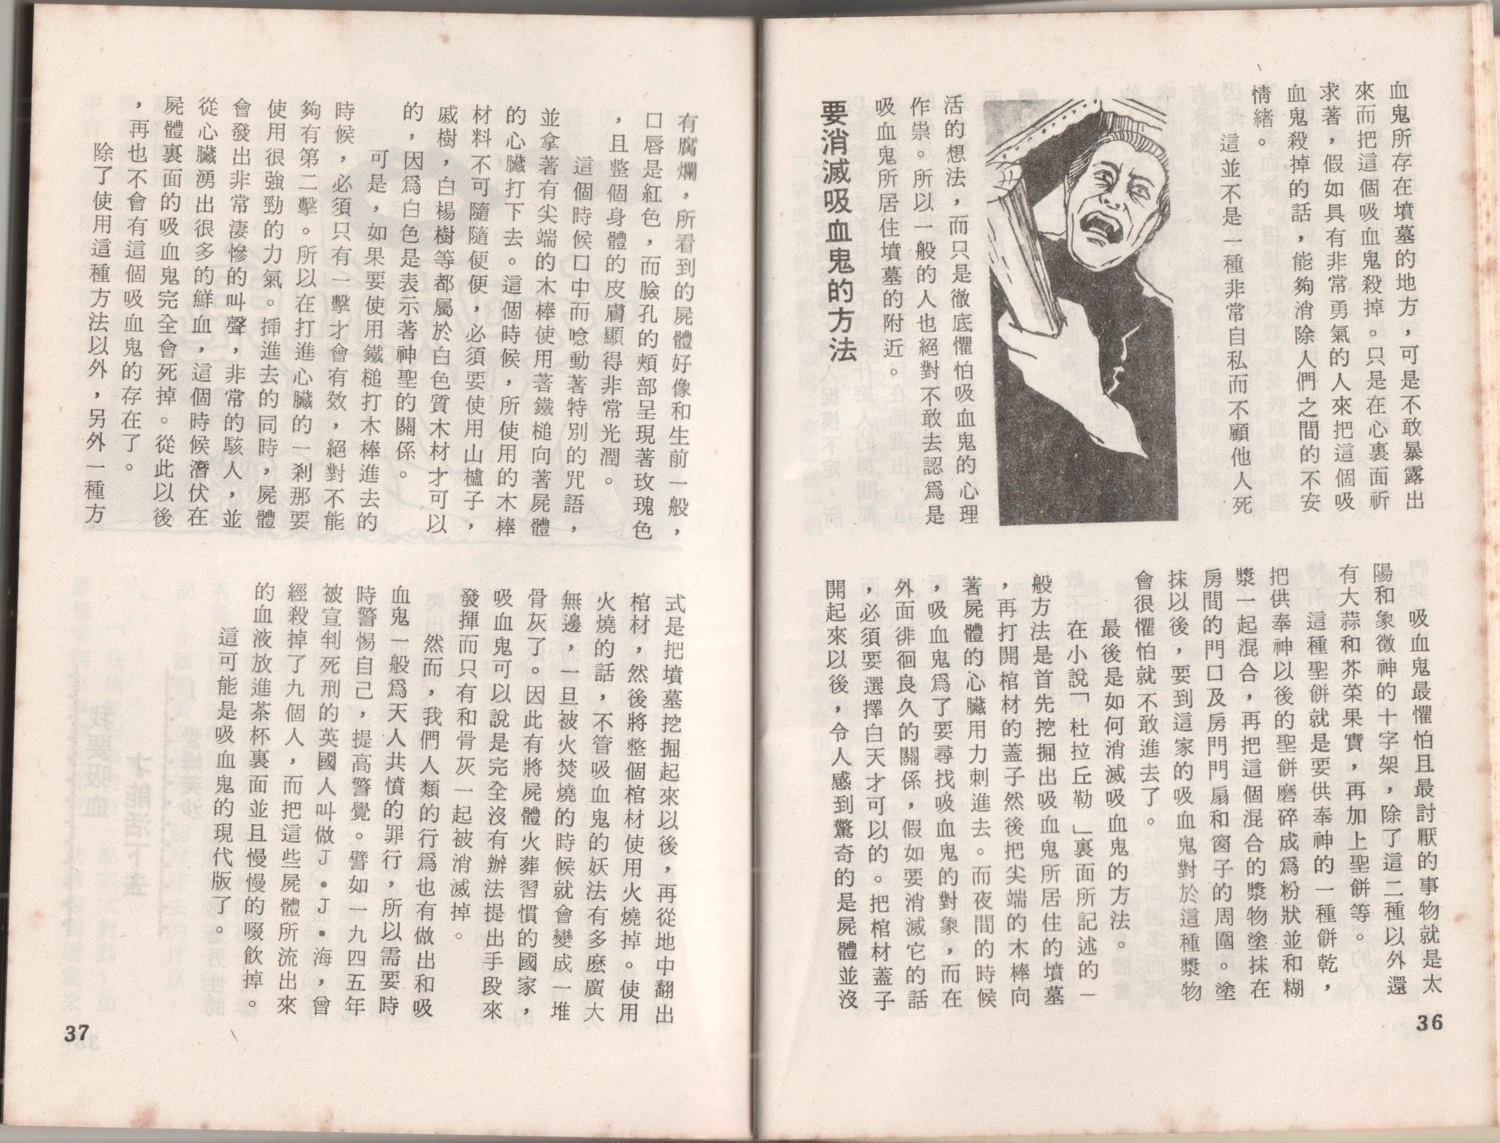 血鬼所存在墳墓的地方，可是不敢暴露出
來而把這個吸血鬼殺掉。只是在心裏面祈
求著，假如具有非常勇氣的人來把這個吸
血鬼殺掉的話，能夠消除人們之間的不安
情緒。
這並不是一種非常自私而不顧他人死
活的想法，而只是徹底懼怕吸血鬼的心理
作祟。所以一般的人也絕對不敢去認爲是
吸血鬼所居住墳墓的附近。
要消滅吸血鬼的方法
吸血鬼最懼怕且最討厭的事物就是太
陽和象徵神的十字架，除了這二種以外還
有大蒜和芥菜果實，再加上聖餅等。
這種聖餅就是要供奉神的一種餅乾，
把供奉神以後的聖餅磨碎成爲粉狀並和糊
漿一起混合，再把這個混合的漿物塗抹在
房間的門口及房門門扇和窗子的周圍。塗
抹以後，要到這家的吸血鬼對於這種漿物
會很懼怕就不敢進去了。
最後是如何消滅吸血鬼的方法。
在小說「杜拉丘勒」裏面所記述的一
般方法是首先挖掘出吸血鬼所居住的墳墓
，再打開棺材的蓋子然後把尖端的木棒向
著屍體的心臟用力刺進去。而夜間的時候
，吸血鬼爲了要尋找吸血鬼的對象，而在
外面徘徊良久的關係，假如要消滅它的話
，必須要選擇白天才可以的。把棺材蓋子
開起來以後，令人感到驚奇的是屍體並沒
36
有腐爛，所看到的屍體好像和生前一般，
口唇是紅色，而臉孔的頰部呈現著玫瑰色
，且整個身體的皮膚顯得非常光潤。
這個時候口中而唸動著特別的咒語，
並拿著有尖端的木棒使用著鐵槌向著屍體
的心臟打下去。這個時候，所使用的木棒
材料不可隨隨便便，必須要使用山櫨子，
戚樹，白楊樹等都屬於白色質木材才可以
的，因爲白色是表示著神聖的關係。
可是，如果要使用鐵槌打木棒進去的
時候，必須只有一擊才會有效，絕對不能
夠有第二擊。所以在打進心臟的一刹那要
使用很強勁的力氣。揷進去的同時，屍體
會發出非常凄慘的叫聲，非常的駭人，並
從心臟湧出很多的鮮血，這個時候潛伏在
屍體裏面的吸血鬼完全會死掉。從此以後
，再也不會有這個吸血鬼的存在了。
除了使用這種方法以外，另外一種方
式是把墳墓挖掘起來以後，再從地中翻出
棺材，然後將整個棺材使用火燒掉。使用
火燒的話，不管吸血鬼的妖法有多麽廣大
無邊，一旦被火焚燒的時候就會變成一堆
骨灰了。因此有將屍體火葬習慣的國家，
吸血鬼可以說是完全沒有辦法提出手段來
發揮而只有和骨灰一起被消滅掉。
然而，我們人類的行爲也有做出和吸
血鬼一般爲天人共憤的罪行，所以需要時
時警惕自己，提高警覺。譬如一九四五年
被宣判死刑的英國人叫做Ｊ•Ｊ•海，曾
經殺掉了九個人，而把這些屍體所流出來
的血液放進茶杯裏面並且慢慢的啜飲掉。
這可能是吸血鬼的現代版了。
37